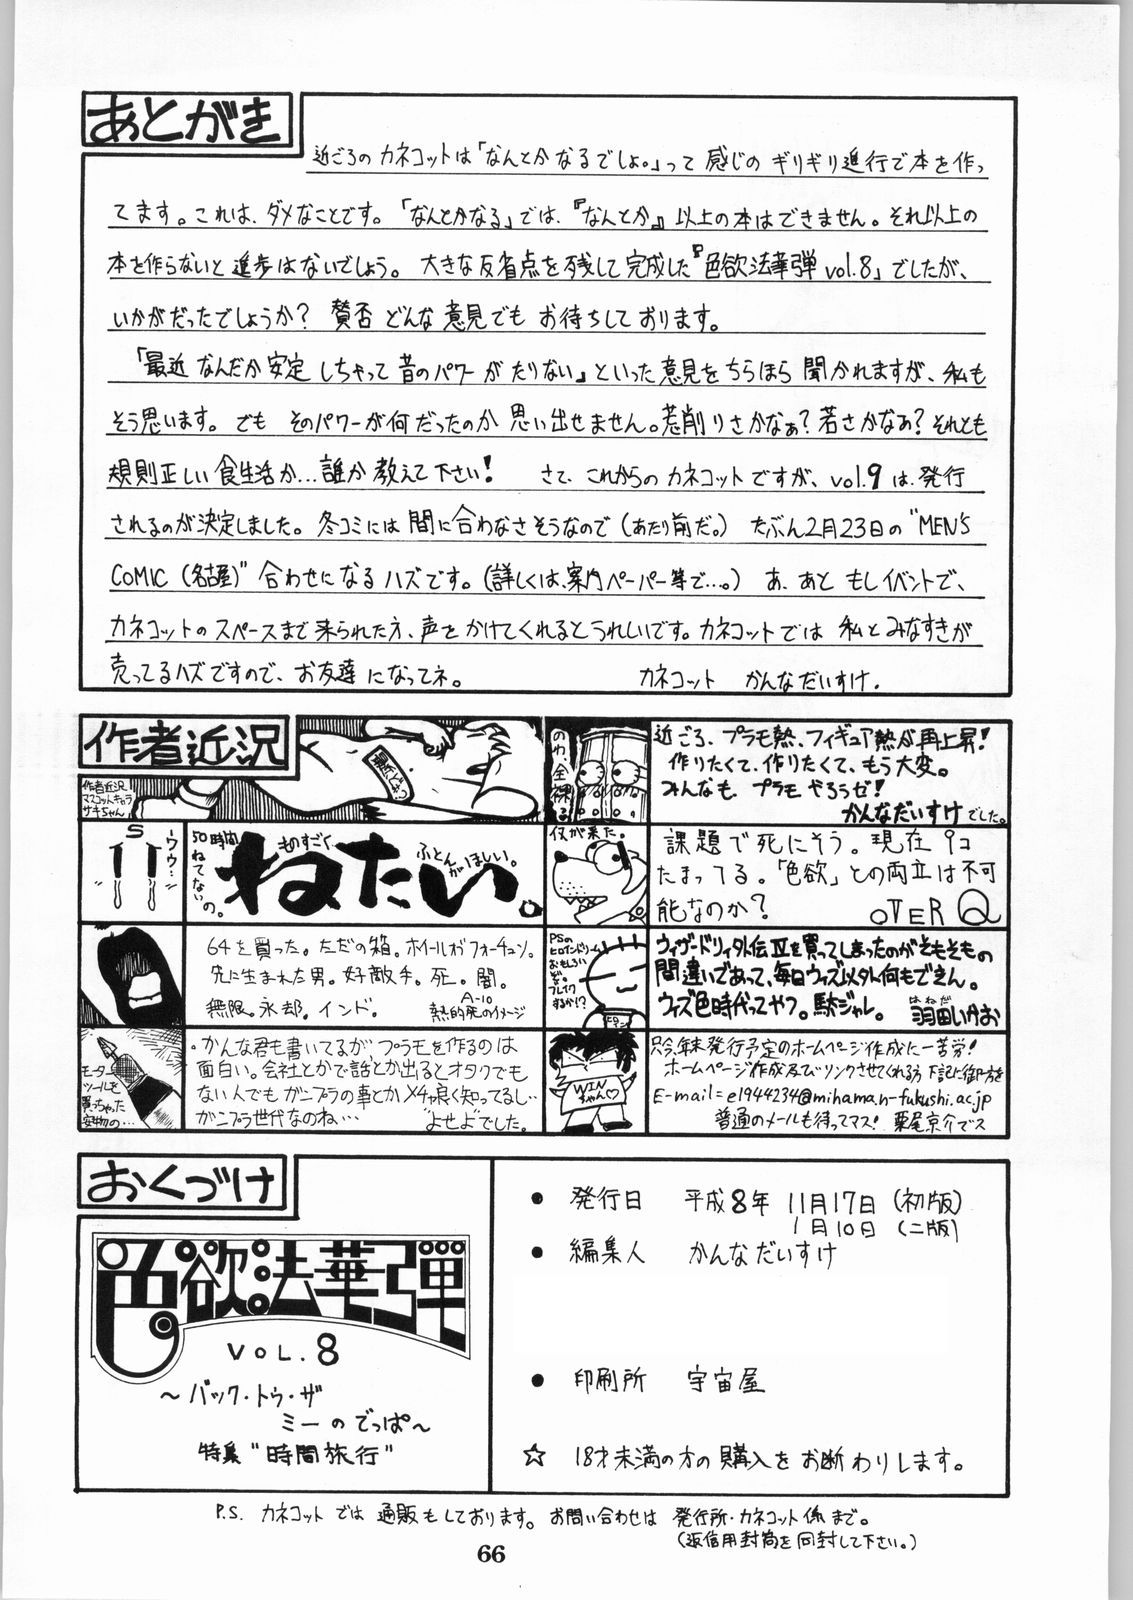 あとがき
近ごろの カネコットは「なんとか なるでしょ。」って 感じの ギリギリ進行で本を作っ
てます。これは、ダメなことです。「なんとかなる」では、『なんとか』以上の本はできません。それ以上の
本を作らないと 進歩はないでしょう。 大きな反省点を残して完成した『色欲法華弾 vol.8」でしたが、
いかがだったでしょうか？ 賛否 どんな意見でも お待ちしております。
「最近 なんだか 安定 しちゃって 昔のパワーが たりない」といった意見をちらほら 聞かれますが、私も
そう思います。でも そのパワーが何だったのか 思い出せません。荒削りさかなぁ？若さかなぁ？それとも
規則正しい食生活か…誰か教えて下さい！ さて、これからの カネコットですが、vol.9 は、発行
されるのが決定しました。冬コミには 間に合わなさそうなので（あたり前だ。） たぶん2月23日の "MEN'S
COMIC（名古屋）" 合わせになるハズです。（詳しくは、案内ペーパー等で…。） あ、あと もしイベントで、
カネコットのスペースまで来られた方、声をかけてくれるとうれしいです。カネコットでは 私とみなすきが
売ってるハズですので、お友達になってネ。 カネコット かんなだいすけ.
作者近況
作者近況！
マスコットキャラ
サキちゃん
のわ、全裸る
近ごろ、プラモ熱、フィギュア熱が再上昇！
作りたくて、作りたくて、もう大変。
みんなも、プラモやろうぜ！
かんなだいすけでした。
S
ウゥ…
50時間
ねてない
の。
ものすごく
ねたい。
ふとん
がほしい。
仅が来た。
課題で死にそう。現在9コ
たまってる。「色欲」との両立は不可
能なのか？ OVER Q
64を買った。ただの箱。ホイールオブフォーチュン。
先に生まれた男。好敵手。死。闇。
無限。永却。インド。
A-10
熱的死のイメージ
PSの
ヒロインドリーム
おもしろい
ぞ。
ブレイク
するか!?
ウィザードリィ外伝Ⅳを買ってしまったのがそもそもの
間違いであって、毎日ウィズ以外何もできん。
ウィズ色時代ってやつ。駄ジャレ。
はねだ
羽田いかお
モーター
ツールを
買っちゃった
安物の…
。かんな君も書いてるが、プラモを作るのは
面白い。会社とかで話とか出るとオタクでも
ない人でもガンプラの事とかメチャ良く知ってるし…
ガンプラ世代なのね… よせよでした。
WIN
ちゃん♡
只今、年末発行予定のホームページ作成に一苦労！
ホームページ作成及びリンクさせてくれる方 下記に御一方を
E-mail=el944234@mihama.n-fukushi.ac.jp
普通のメールも待ってマス！ 栗尾京介でス
おくづけ
色欲法華弾
VOL.8
～バック・トゥ・ザ
ミーのでっぱ～
特集 "時間旅行"
● 発行日 平成8年 11月17日（初版）
1月10日（二版）
● 編集人 かんなだいすけ
● 印刷所 宇宙屋
☆ 18才未満の方の購入をお断わりします。
P.S. カネコットでは 通販もしております。お問い合わせは 発行所・カネコット係まで。
（返信用封筒を同封して下さい。）
66